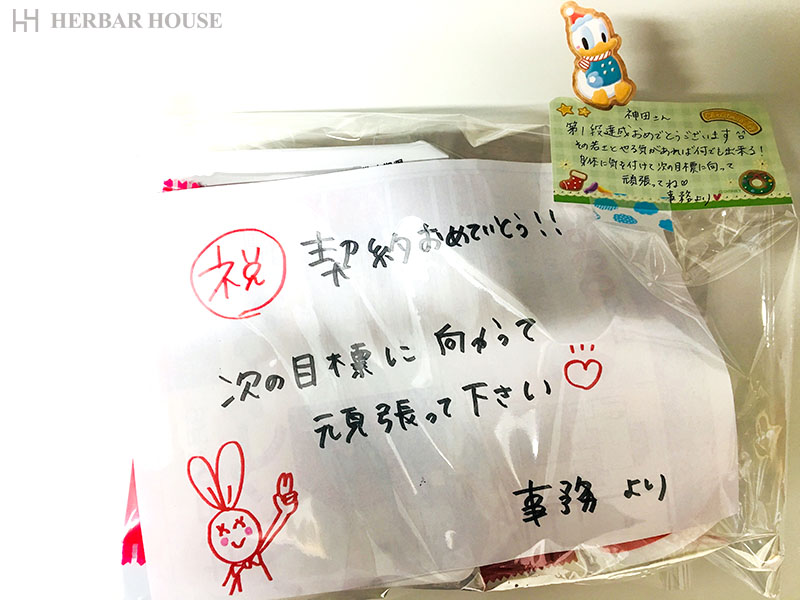 HERBAR HOUSE
神田さん
第1段達成おめでとうございます
その若さとやる気があれば何でも出来る!
身体に気を付けて次の目標に向って
頑張ってね♡
事務より♥
祝 契約おめでとう!!
次の目標に 向かって
頑張って下さい♡
事務 より